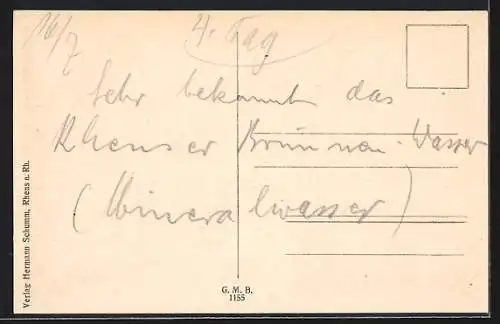 16/7
4. Tag
Sehr bekannt das
Rhenser Brunnen-Wasser
(Mineralwasser)
Verlag Hermann Schumm, Rhens a. Rh.
G. M. B.
1155